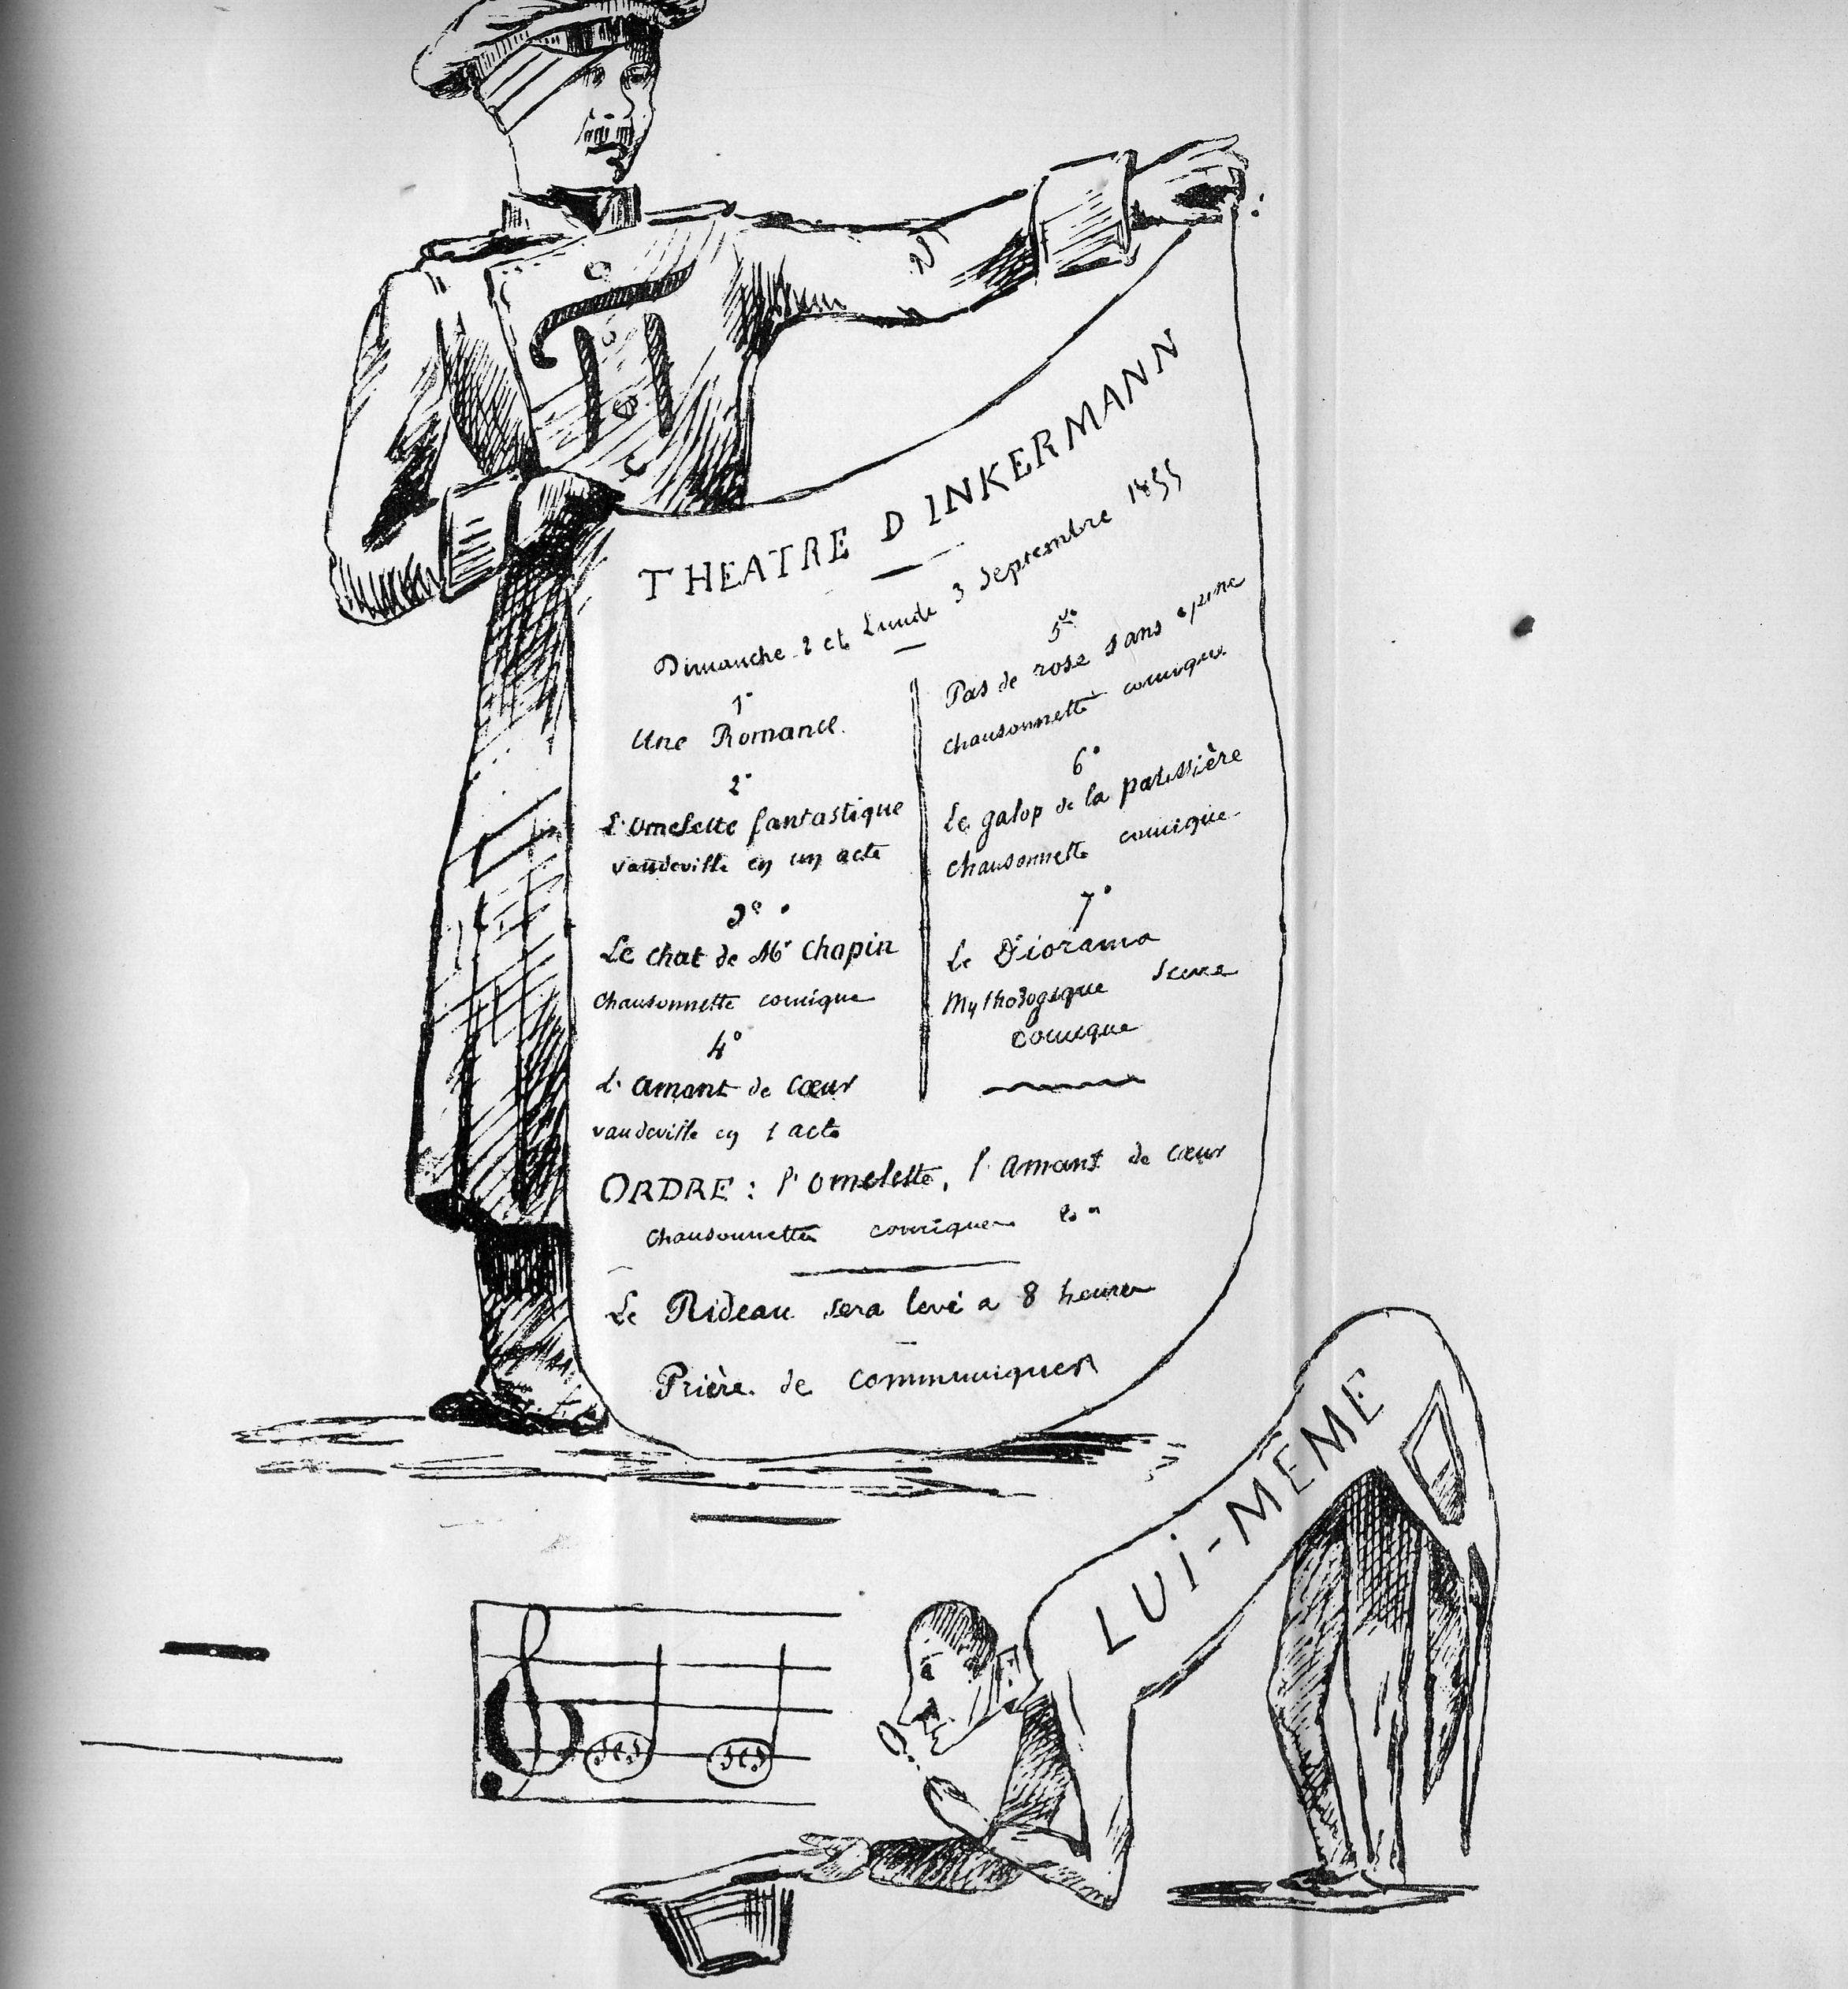 THEATRE D INKERMANN
Dimanche 2 et Lundi 3 Septembre 1855
1°
Une Romance.
2°
L'Omelette fantastique
vaudeville en un acte
3° •
Le chat de Mr Chopin
Chansonnette comique
4°
L'amant de cœur
vaudeville en 1 acte
5°
Pas de rose sans epine
chansonnette comique
6°
Le galop de la patissière
chansonnette comique
7°
Le Diorama
Mythologique Scene
comique
ORDRE : l'omelette, l'Amant de cœur
Chansonnettes comiques
Le Rideau sera levé a 8 heures
Prière de communiquer
LUI-MÊME